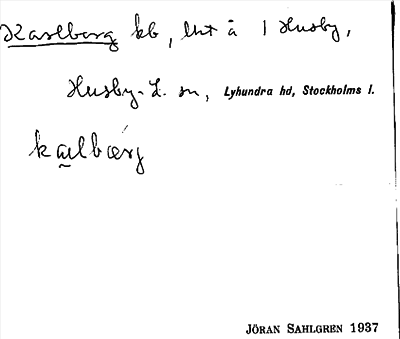 Karlberg kb, lht å 1 Husby,
Husby-L. sn, Lyhundra hd, Stockholms l.
kalbærg
JÖRAN SAHLGREN 1937